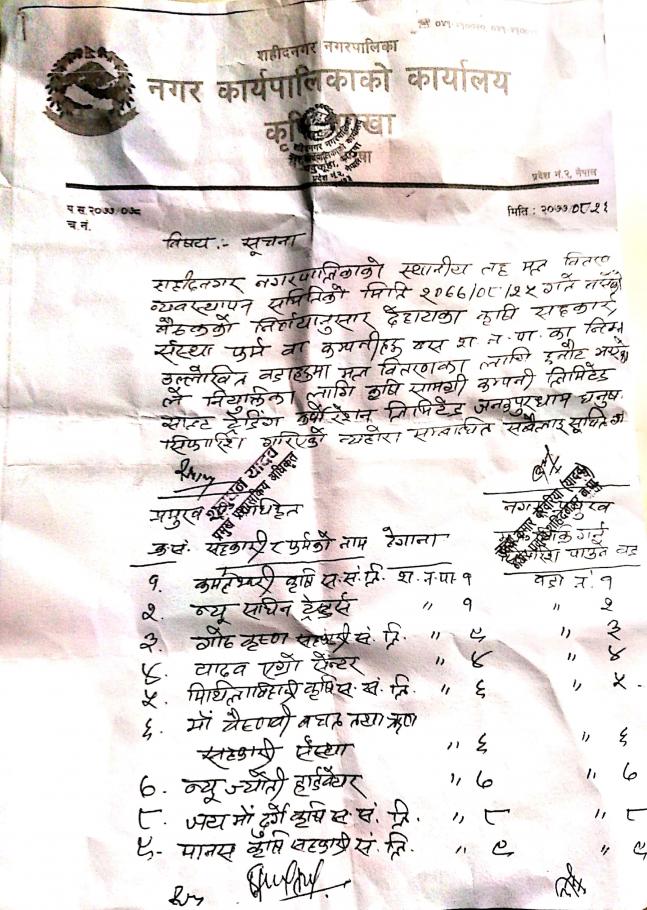 शहीदनगर नगरपालिका
नगर कार्यपालिकाको कार्यालय
कृषि शाखा
प्रदेश नं.२, नेपाल
प.स.२०७७/०७८
च.नं.
मिति : २०७७/०८/२६
विषय :- सूचना
शहीदनगर नगरपालिकाको स्थानीय तह मल वितरण
व्यवस्थापन समितिको मिति २०७७/०८/२५ गते
बैठकको निर्णयानुसार देहायका कृषि सहकारी
संस्था फर्म वा कम्पनीहरु यस श. न. पा. का निम्न
उल्लेखित वडाहरुमा मल वितरणका लागि छनौट
ले नियुक्तिका लागि कृषि सामग्री कम्पनी लिमिटेड
साल्ट ट्रेडिंग कर्पोरेशन लिमिटेड जनकपुरधाम धनुषा
सिफारिस गरिएको व्यहोरा सम्बन्धित सबैलाई सूचित
प्रमुख
नगर प्रमुख
क्र.सं. सहकारी र फर्मको नाम ठेगाना
१. कमलेश्वरी कृषि स. सं. लि. श. न. पा. १ वडा नं. १
२. न्यू साधिन ट्रेडर्स " १ " २
३. गोठ कृष्ण सहकारी सं. लि. " ९ " ३
४. यादव एग्रो सेन्टर " ४ " ४
५. मिथिलाबिहारी कृषि स. सं. लि. " ६ " ५
६. माँ वैष्णवी बचत तथा ऋण
सहकारी संस्था " ६ " ६
७. न्यू ज्योती हार्डवेयर " ७ " ७
८. जय माँ दुर्गे कृषि स. सं. लि. " ८ " ८
९. पानस कृषि सहकारी सं. लि. " ९ " ९